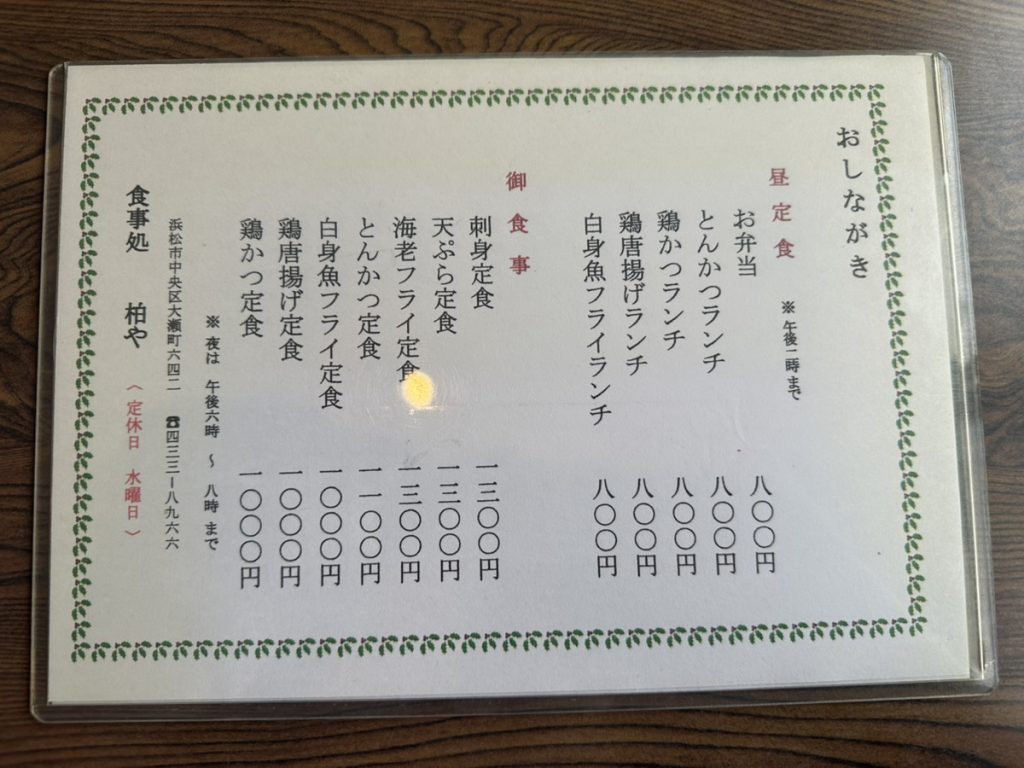 おしながき
昼定食 ※午後二時まで
お弁当 八〇〇円
とんかつランチ 八〇〇円
鶏かつランチ 八〇〇円
鶏唐揚げランチ 八〇〇円
白身魚フライランチ 八〇〇円
御食事
刺身定食 一三〇〇円
天ぷら定食 一三〇〇円
海老フライ定食 一三〇〇円
とんかつ定食 一一〇〇円
白身魚フライ定食 一〇〇〇円
鶏唐揚げ定食 一〇〇〇円
鶏かつ定食 一〇〇〇円
※ 夜は 午後六時 〜 八時 まで
浜松市中央区大瀬町六四二 ☎四三三ー八九六六
食事処 柏や 〈 定休日 水曜日 〉